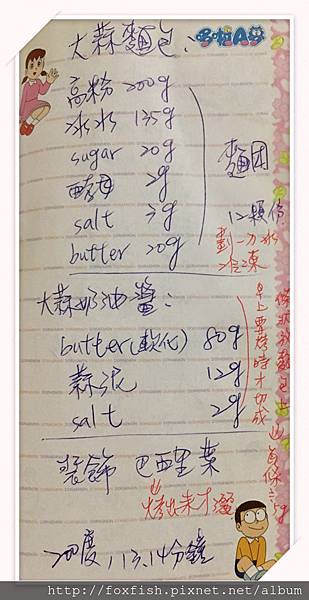 大蒜麵包：
哆啦A夢
高粉 200g
冰水 135g
sugar 20g
酵母 2g
salt 3g
butter 20g
麵団
12顆份
劃一刀 水
冷凍
大蒜奶油醬：
butter(軟化) 80g
蒜泥 12g
salt 2g
早上要烤時才切成
條狀放麵包上
每條=5g
裝飾 巴西里葉
烤出來才灑
200度，13.14分鐘
http://foxfish.pixnet.net/album